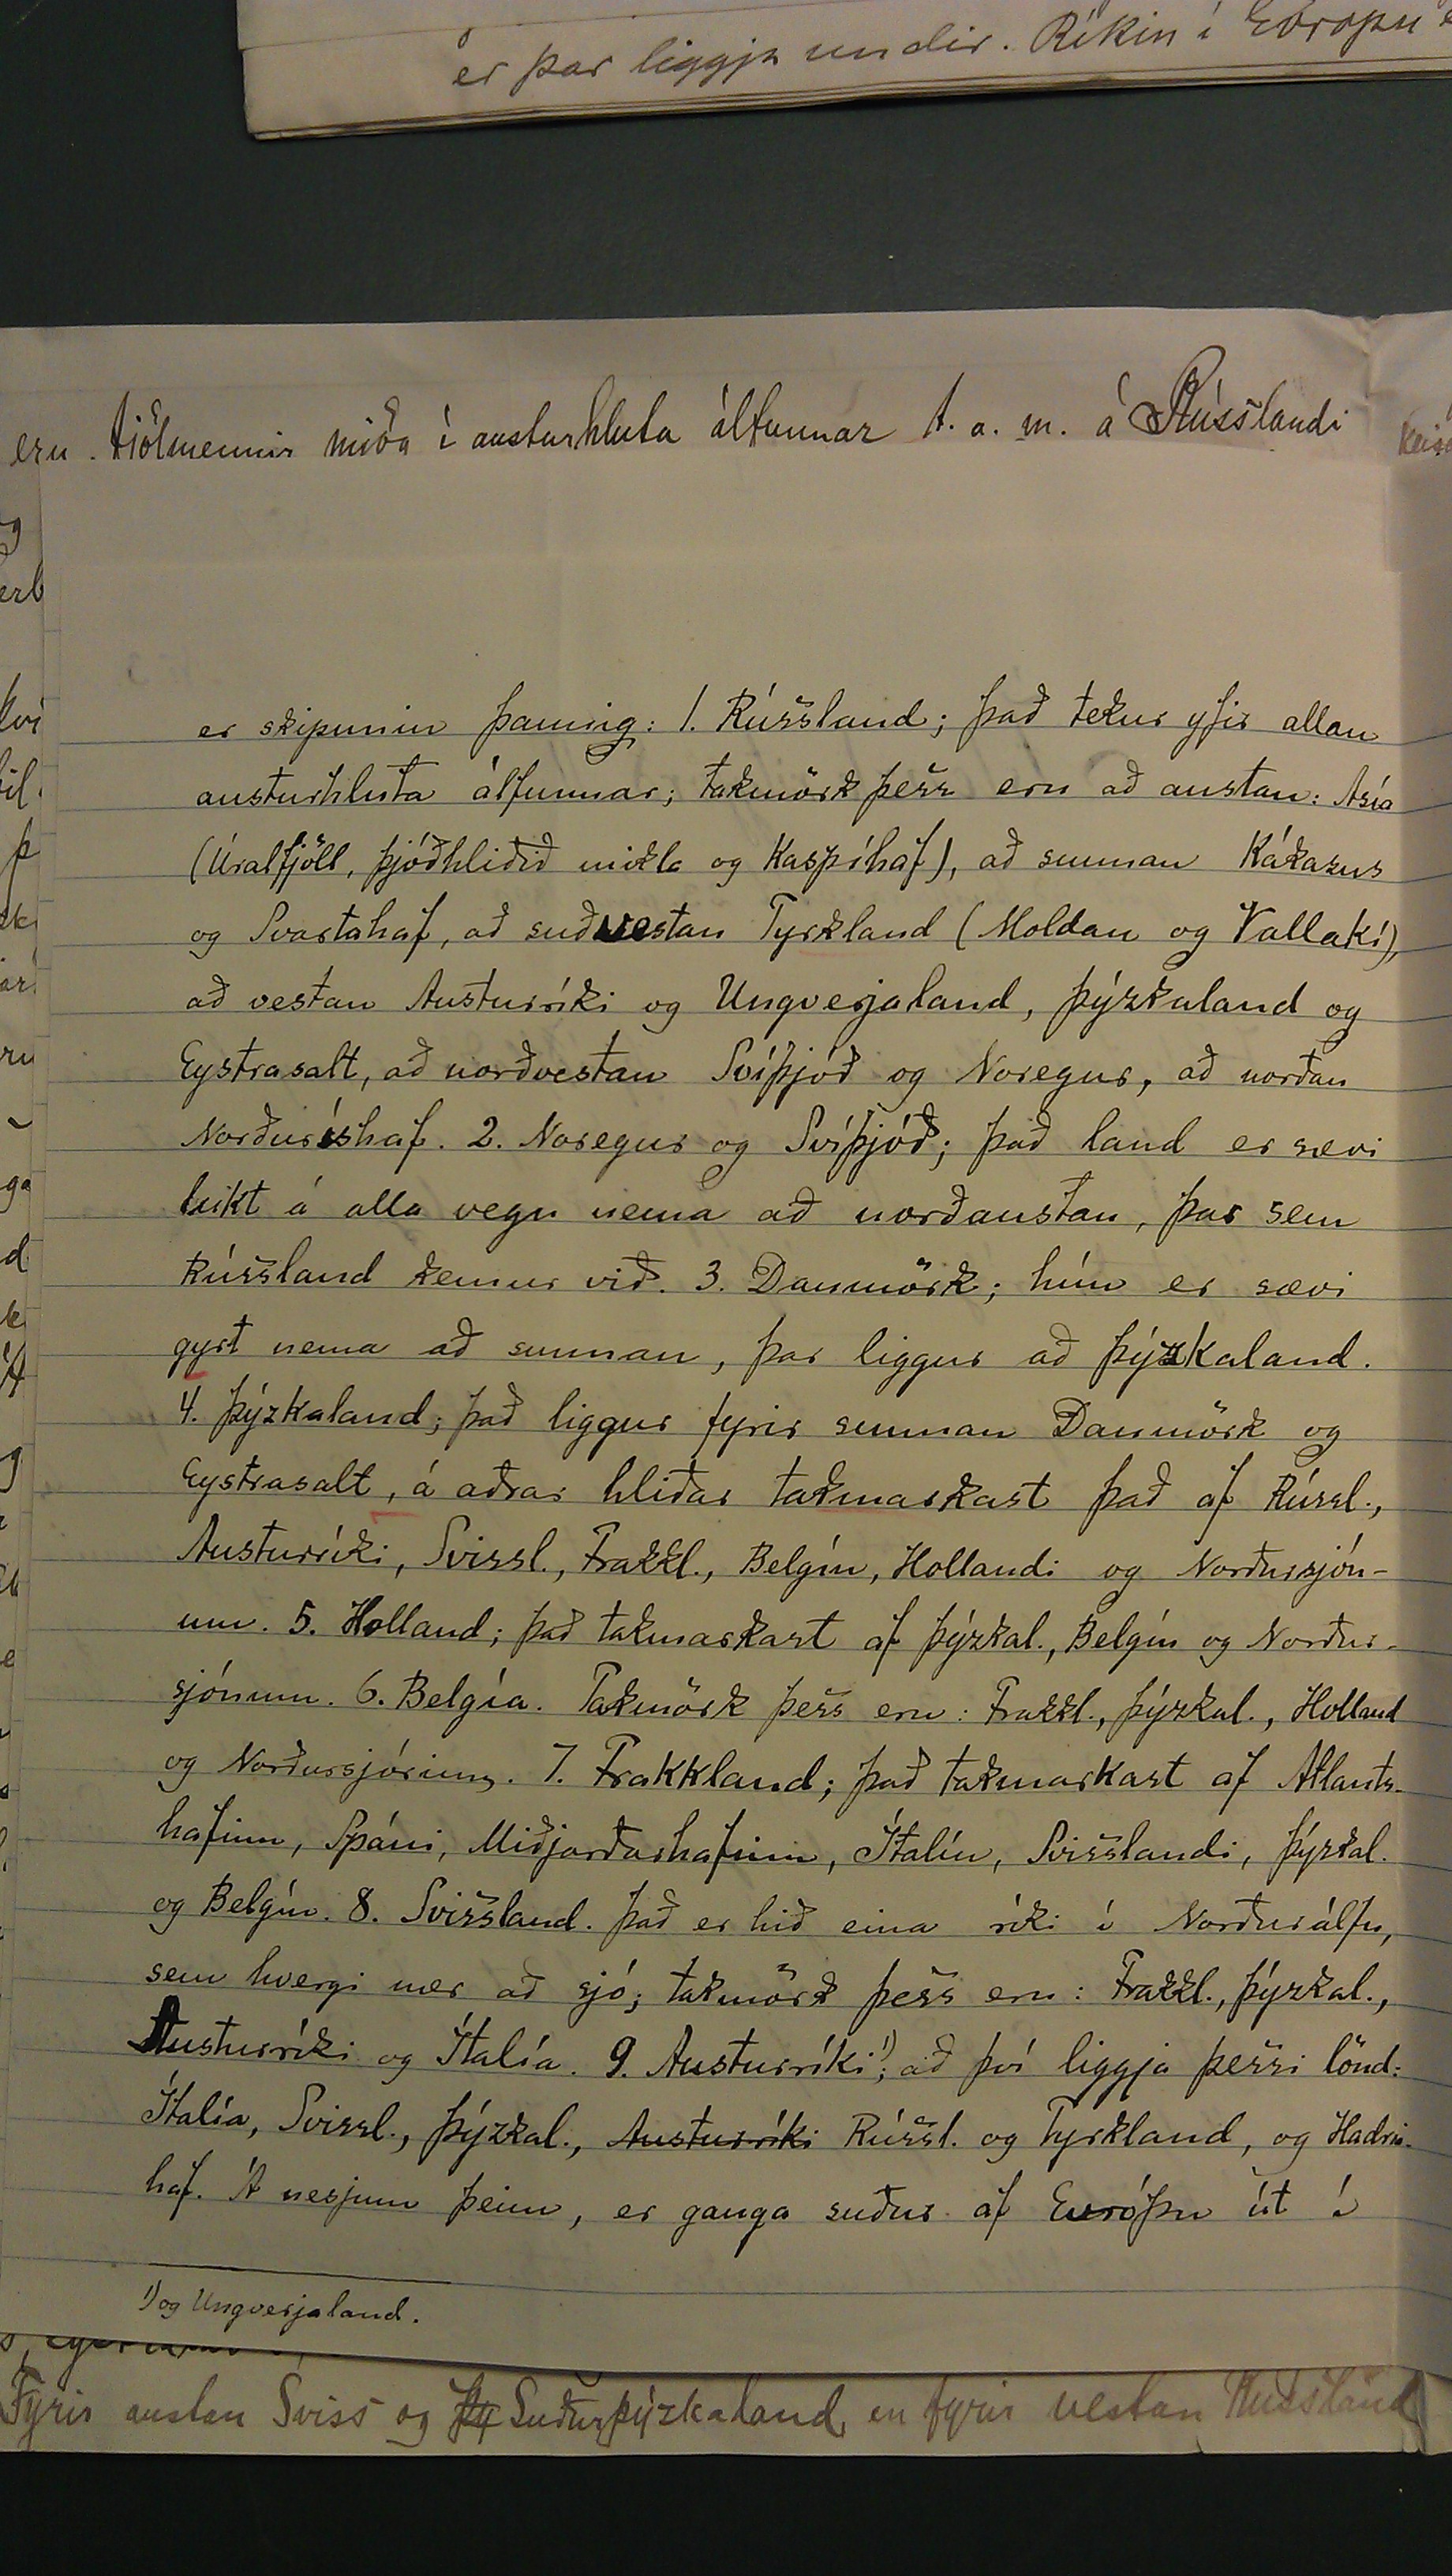 er þar liggja undir. Ríkin í Evrópu
eru. fjölmennir mjög í austurhluta álfunnar t. a. m. á Rússlandi
er skipunin þannig: 1. Rússland; það tekur yfir allan
austurhluta álfunnar; takmörk þess eru að austan: Asía
(Úralfjöll, þjóðhliðið mikla og Kaspíhaf), að sunnan Kákasus
og Svartahaf, að suðvestan Tyrkland (Moldau og Vallakí),
að vestan Austurríki og Ungverjaland, Þýzkaland og
Eystrasalt, að norðvestan Svíþjóð og Noregur, að norðan
Norðuríshaf. 2. Noregur og Svíþjóð; það land er sævi
lukt á alla vegu nema að norðaustan, þar sem
Rússland kemur við. 3. Danmörk; hún er sævi
gyrt nema að sunnan, þar liggur að Þýzkaland.
4. Þýzkaland; það liggur fyrir sunnan Danmörk og
Eystrasalt, á aðrar hliðar takmarkast það af Rússl.,
Austurríki, Svissl., Frakkl., Belgíu, Hollandi og Norðursjón-
um. 5. Holland; það takmarkast af Þýzkal., Belgíu og Norður-
sjónum. 6. Belgía. Takmörk þess eru: Frakkl., Þýzkal., Holland
og Norðursjórinn. 7. Frakkland; það takmarkast af Atlants-
hafinu, Spáni, Miðjarðarhafinu, Ítalíu, Svisslandi, Þýzkal.
og Belgíu. 8. Svissland. Það er hið eina ríki í Norðurálfu,
sem hvergi nær að sjó; takmörk þess eru: Frakkl., Þýzkal.,
Austurríki og Ítalía. 9. Austurríki¹⁾; að því liggja þessi lönd:
Ítalía, Svissl., Þýzkal., Austurríki Rússl. og Tyrkland, og Hadría-
haf. Á nesjum þeim, er ganga suður af Evrópu út í
¹⁾ og Ungverjaland.
Fyrir austan Sviss og Þý Suðurþýzkaland, en fyrir vestan Rússland